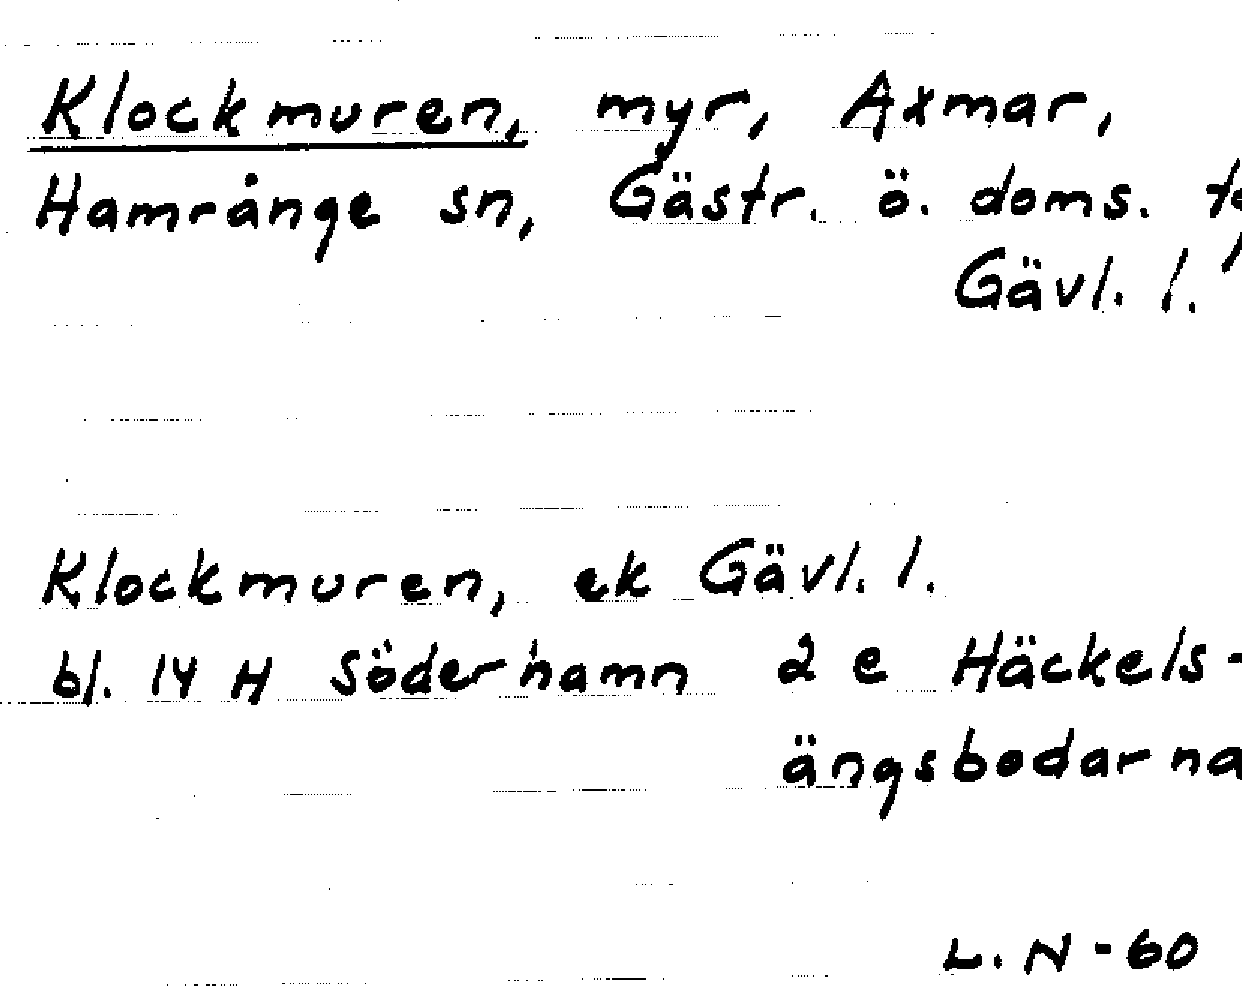 Klockmuren, myr, Axmar,
Hamrånge sn, Gästr. ö. doms.
Gävl. l.
Klockmuren, ek Gävl. l.
bl. 14 H Söderhamn 2 e Häckels-
ängsbodarna
L. N - 60